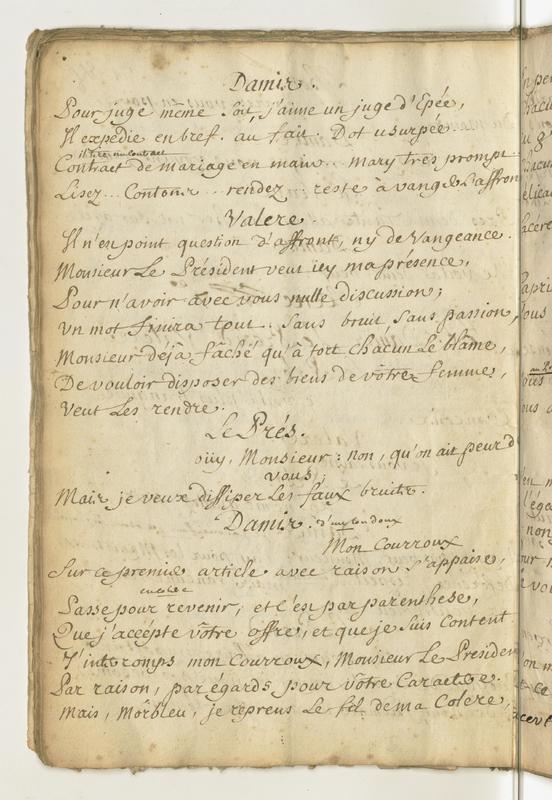 Damis.
Pour juge même. Soit, j'aime un juge d'Epée,
Il expédie en bref. au fait. Dot usurpée
il tire un contract
Contract de mariage en main... mary très prompt...
Lisez... Contour... rendez... reste à vanger L'affron
Valere.
Il n'est point question d'affront, ny de Vangeance.
Monsieur Le Président veut icy ma présence,
Pour n'avoir avec vous nulle discussion;
Un mot finira tout. Sans bruit, Sans passion,
Monsieur déja fâché qu'à tort chacun Le blâme,
De vouloir disposer des biens de vôtre femme,
Veut Les rendre.
Le Prés.
oüy, Monsieur: non, qu'on ait peur d
vous;
Mais je veux dissiper Les faux bruits.
Damis. d'un ton doux
Mon Courroux
Sur ce premier article avec raison S'appaise,
Passe pour revenir, et c'est par parenthese,
Que j'accépte vôtre offre, et que je Suis Content.
J'interomps mon Courroux, Monsieur Le Présiden
Par raison, par égards pour vôtre Caractere.
Mais, Morbleu, je reprens Le fil de ma Colere,